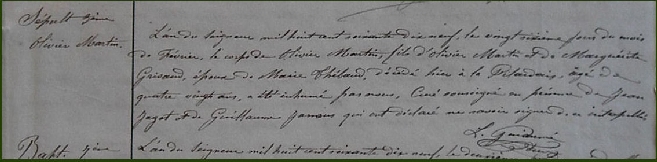 Sépult 3ème
Olivier Martin.
L'an du seigneur mil huit cent soixante dix neuf, le vingt sixième jour du mois
de Février, le corps de Olivier Martin, fils d'Olivier Martin et de Marguerite
époux de Marie décédé hier à la agé de
quatre vingt ans, a été inhumé par nous, Curé soussigné en présence de Jean
et de Guillaume qui ont déclaré ne savoir signer, de ce interpellés
Bapt. 7ème
L'an du seigneur mil huit cent soixante dix neuf, le